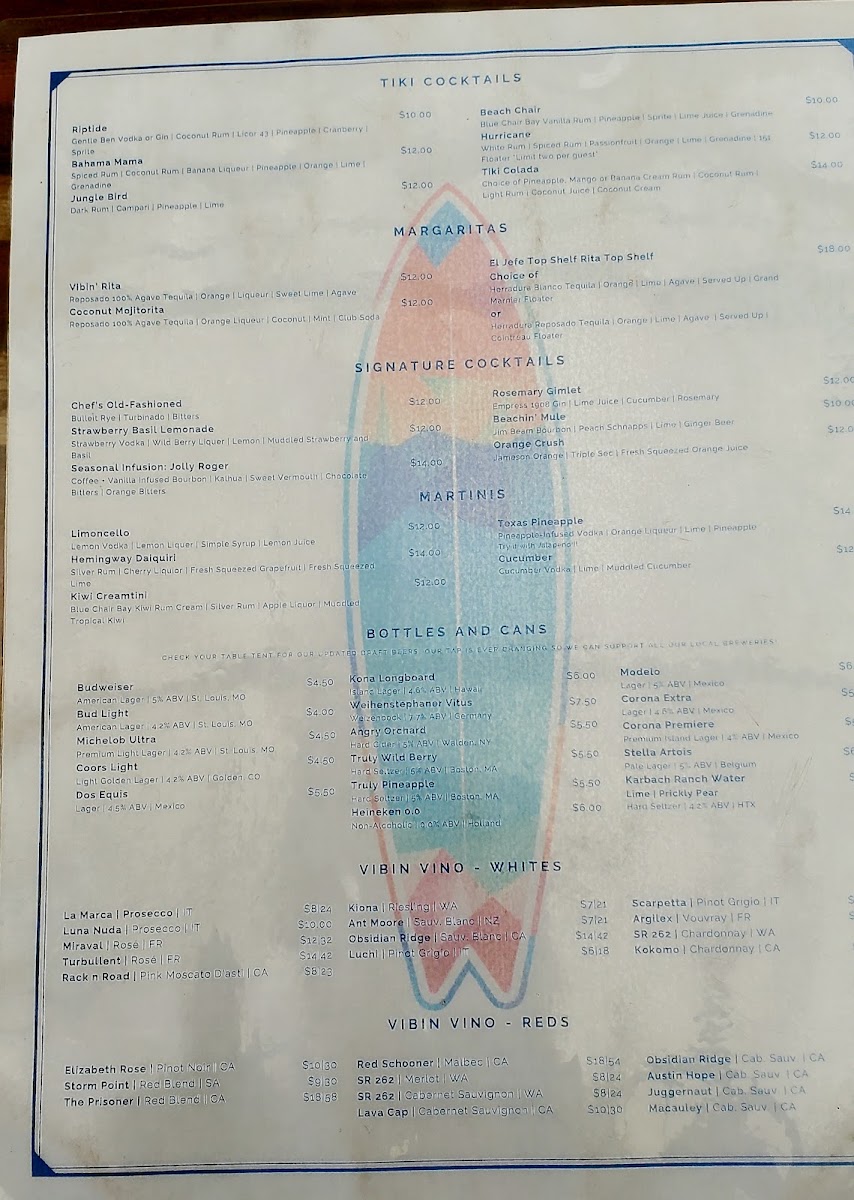 TIKI COCKTAILS
Riptide $10.00
Gentle Ben Vodka or Gin | Coconut Rum | Licor 43 | Pineapple | Cranberry |
Sprite
Bahama Mama $12.00
Spiced Rum | Coconut Rum | Banana Liqueur | Pineapple | Orange | Lime |
Grenadine
Jungle Bird $12.00
Dark Rum | Campari | Pineapple | Lime
Beach Chair $10.00
Blue Chair Bay Vanilla Rum | Pineapple | Sprite | Lime Juice | Grenadine
Hurricane $12.00
White Rum | Spiced Rum | Passionfruit | Orange | Lime | Grenadine | 151
Floater *Limit two per guest*
Tiki Colada $14.00
Choice of Pineapple, Mango or Banana Cream Rum | Coconut Rum |
Light Rum | Coconut Juice | Coconut Cream
MARGARITAS
Vibin' Rita $12.00
Reposado 100% Agave Tequila | Orange | Liqueur | Sweet Lime | Agave
Coconut Mojitorita $12.00
Reposado 100% Agave Tequila | Orange Liqueur | Coconut | Mint | Club Soda
El Jefe Top Shelf Rita Top Shelf $18.00
Choice of
Herradura Blanco Tequila | Orange | Lime | Agave | Served Up | Grand
Marnier Floater
or
Herradura Reposado Tequila | Orange | Lime | Agave | Served Up |
Cointreau Floater
SIGNATURE COCKTAILS
Chef's Old-Fashioned $12.00
Bulleit Rye | Turbinado | Bitters
Strawberry Basil Lemonade $12.00
Strawberry Vodka | Wild Berry Liquer | Lemon | Muddled Strawberry and
Basil
Seasonal Infusion: Jolly Roger $14.00
Coffee + Vanilla Infused Bourbon | Kalhua | Sweet Vermouth | Chocolate
Bitters | Orange Bitters
Rosemary Gimlet $12.00
Empress 1908 Gin | Lime Juice | Cucumber | Rosemary
Beachin' Mule $10.00
Jim Beam Bourbon | Peach Schnapps | Lime | Ginger Beer
Orange Crush $12.0
Jameson Orange | Triple Sec | Fresh Squeezed Orange Juice
MARTINIS
Limoncello $12.00
Lemon Vodka | Lemon Liquer | Simple Syrup | Lemon Juice
Hemingway Daiquiri $14.00
Silver Rum | Cherry Liquor | Fresh Squeezed Grapefruit | Fresh Squeezed
Lime
Kiwi Creamtini $12.00
Blue Chair Bay Kiwi Rum Cream | Silver Rum | Apple Liquor | Muddled
Tropical Kiwi
Texas Pineapple $14
Pineapple-Infused Vodka | Orange Liqueur | Lime | Pineapple
Try it with Jalapeno!!!
Cucumber $12
Cucumber Vodka | Lime | Muddled Cucumber
BOTTLES AND CANS
CHECK YOUR TABLE TENT FOR OUR UPDATED DRAFT BEERS. OUR TAP IS EVER CHANGING SO WE CAN SUPPORT ALL OUR LOCAL BREWERIES!
Budweiser $4.50
American Lager | 5% ABV | St. Louis, MO
Bud Light $4.00
American Lager | 4.2% ABV | St. Louis, MO
Michelob Ultra $4.50
Premium Light Lager | 4.2% ABV | St. Louis, MO
Coors Light $4.50
Light Golden Lager | 4.2% ABV | Golden, CO
Dos Equis $5.50
Lager | 4.5% ABV | Mexico
Kona Longboard $6.00
Island Lager | 4.6% ABV | Hawaii
Weihenstephaner Vitus $7.50
Weizenbock | 7.7% ABV | Germany
Angry Orchard $5.50
Hard Cider | 5% ABV | Walden, NY
Truly Wild Berry $5.50
Hard Seltzer | 5% ABV | Boston, MA
Truly Pineapple $5.50
Hard Seltzer | 5% ABV | Boston, MA
Heineken 0.0 $6.00
Non-Alcoholic | 0.0% ABV | Holland
Modelo $6
Lager | 5% ABV | Mexico
Corona Extra $5
Lager | 4.6% ABV | Mexico
Corona Premiere
Premium Island Lager | 4% ABV | Mexico
Stella Artois
Pale Lager | 5% ABV | Belgium
Karbach Ranch Water
Lime | Prickly Pear
Hard Seltzer | 4.2% ABV | HTX
VIBIN VINO - WHITES
La Marca | Prosecco | IT $8|24
Luna Nuda | Prosecco | IT $10.00
Miraval | Rosé | FR $12|32
Turbullent | Rosé | FR $14|42
Rack n Road | Pink Moscato D'asti | CA $8|23
Kiona | Riesling | WA $7|21
Ant Moore | Sauv. Blanc | NZ $7|21
Obsidian Ridge | Sauv. Blanc | CA $14|42
Luchi | Pinot Grigio | IT $6|18
Scarpetta | Pinot Grigio | IT
Argilex | Vouvray | FR
SR 262 | Chardonnay | WA
Kokomo | Chardonnay | CA
VIBIN VINO - REDS
Elizabeth Rose | Pinot Noir | CA $10|30
Storm Point | Red Blend | SA $9|30
The Prisoner | Red Blend | CA $18|58
Red Schooner | Malbec | CA $18|54
SR 262 | Merlot | WA $8|24
SR 262 | Cabernet Sauvignon | WA $8|24
Lava Cap | Cabernet Sauvignon | CA $10|30
Obsidian Ridge | Cab. Sauv. | CA
Austin Hope | Cab. Sauv. | CA
Juggernaut | Cab. Sauv. | CA
Macauley | Cab. Sauv. | CA